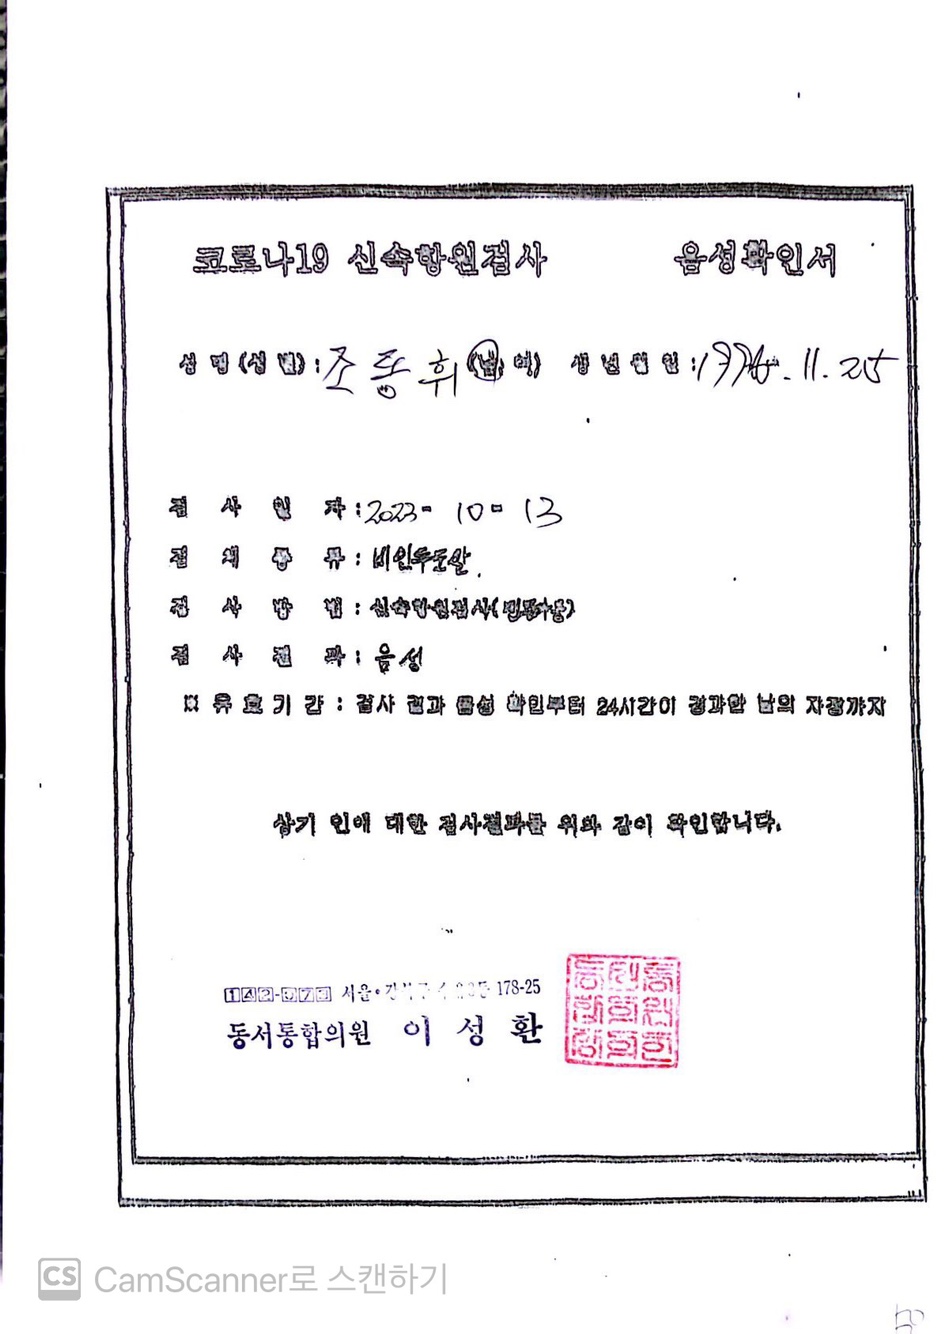 코로나19 신속항원검사 음성확인서
성명(성별): 조동휘 (남, 여) 생년월일: .11.25
검사일자: 2023-10-13
검체종류: 비인두도말
검사방법: 신속항원검사(전문가용)
검사결과: 음성
※ 유효기간 : 검사 결과 음성 확인부터 24시간이 경과한 날의 자정까지
상기 인에 대한 검사결과를 위와 같이 확인합니다.
서울 178-25
동서통합의원 이성환
CS CamScanner로 스캔하기